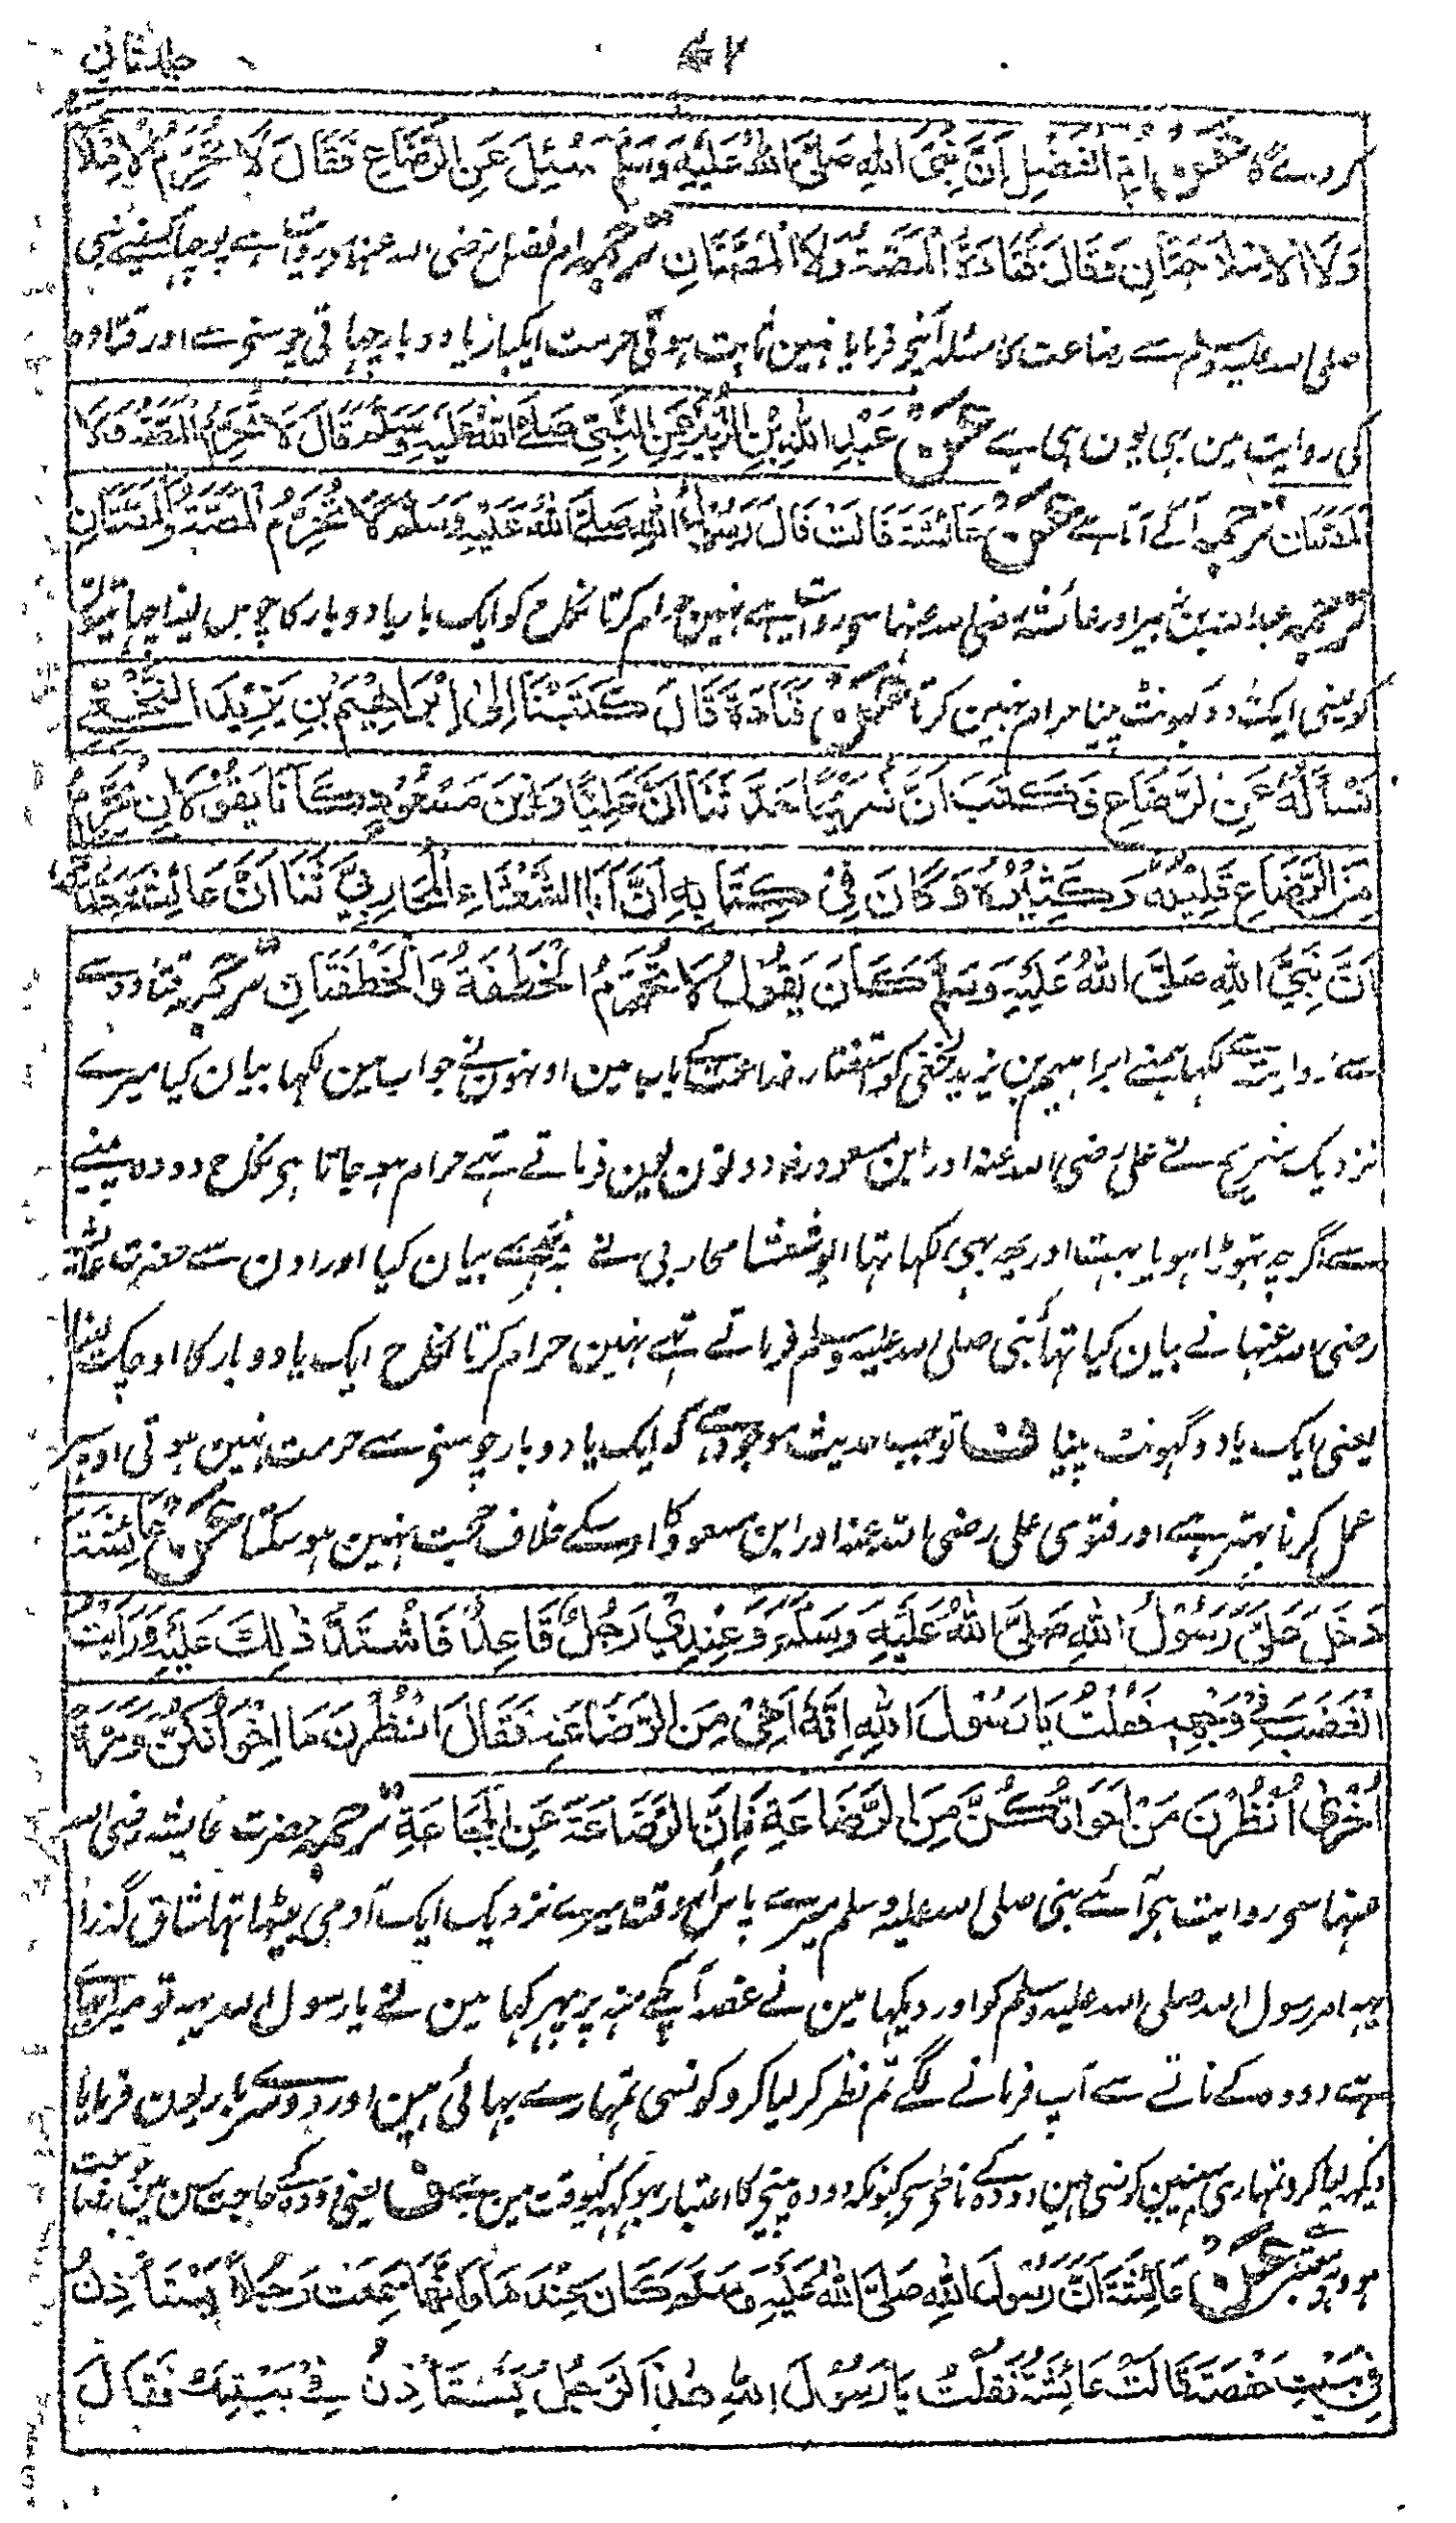 جلد ثانی
کر دے گا عَنْ اُمِّ الْفَضْلِ اَنَّ نَبِیَّ اللهِ صَلَّی اللهُ عَلَیْهِ وَسَلَّمَ سُئِلَ عَنِ الرَّضَاعِ فَقَالَ لَا تُحَرِّمُ الْاِمْلَا
وَلَا الْاِمْلَاجَتَانِ وَقَالَ قَتَادَةُ الْمَصَّةُ وَلَا الْمَصَّتَانِ ترجمہ ام فضل رضی اللہ عنہا سے پوچھا کسینے نبی
صلی اللہ علیہ وسلم سے رضاعت کا مسئلہ آپنے فرمایا نہین ثابت ہوتی حرمت ایکبار یا دو بار چہاتی چوسنے سے اور قتادہ
کی روایت مین بہی یون ہی ہے عَنْ عَبْدِ اللهِ بْنِ الزُّبَیْرِ عَنِ النَّبِیِّ صَلَّی اللهُ عَلَیْهِ وَسَلَّمَ قَالَ لَا تُحَرِّمُ الْمَصَّةُ وَلَا
الْمَصَّتَانِ ترجمہ آگے آتا ہے عَنْ عَائِشَةَ قَالَتْ قَالَ رَسُوْلُ اللهِ صَلَّی اللهُ عَلَیْهِ وَسَلَّمَ لَا تُحَرِّمُ الْمَصَّةُ وَالْمَصَّتَانِ
ترجمہ عبداللہ بن زبیر اور عائشہ رضی اللہ عنہا سے روایت ہے نہین حرام کرتا نکاح کو ایک بار یا دو بار کا چوس لینا چہاتیون
کو یعنی ایک دو گہونٹ پینا حرام نہین کرتا عَنْ قَتَادَةَ قَالَ كَتَبْنَا اِلٰی اِبْرَاهِیْمَ بْنِ یَزِیْدَ النَّخَعِیِّ
نَسْأَلُهُ عَنِ الرَّضَاعِ فَكَتَبَ اَنَّ شُرَیْحًا حَدَّثَنَا اَنَّ عَلِیًّا وَابْنَ مَسْعُوْدٍ كَانَا یَقُوْلَانِ یُحَرِّمُ
مِنَ الرَّضَاعِ قَلِیْلُهُ وَكَثِیْرُهُ وَكَانَ فِیْ كِتَابِهِ اَنَّ اَبَا الشَّعْثَاءِ الْمُحَارِبِیَّ ثَنَا اَنَّ عَائِشَةَ حَدَّثَتْهُ
اَنَّ نَبِیَّ اللهِ صَلَّی اللهُ عَلَیْهِ وَسَلَّمَ كَانَ یَقُوْلُ لَا تُحَرِّمُ الْخَطْفَةُ وَالْخَطْفَتَانِ ترجمہ قتادہ
سے روایت ہے لکہا ہمنے ابراہیم بن یزید نخعی کو استفتا رضاعت کے باب مین اونہون نے جواب مین لکہا بیان کیا میرے
نزدیک شریح نے علی رضی اللہ عنہ اور ابن مسعود رضہ دونون یون فرماتے تہے حرام ہو جاتا ہے نکاح دودہ پینے
سے اگرچہ تہوڑا ہو یا بہت اور یہ بہی لکہا تہا ابو شعثا محاربی نے مجہسے بیان کیا اور اون سے حضرت عائشہ
رضی اللہ عنہا نے بیان کیا تہا نبی صلی اللہ علیہ وسلم فرماتے تہے نہین حرام کرتا نکاح ایک یا دو بار کا اوچک لینا
یعنی ایک یا دو گہونٹ پینا ف توجب حدیث موجود ہے کہ ایک یا دو بار چوسنے سے حرمت نہین ہوتی اوسپر
عمل کرنا بہتر ہے اور فتوی علی رضی اللہ عنہ اور ابن مسعود کا اوسکے خلاف حجت نہین ہو سکتا عَنْ عَائِشَةَ
دَخَلَ عَلَیَّ رَسُوْلُ اللهِ صَلَّی اللهُ عَلَیْهِ وَسَلَّمَ وَعِنْدِیْ رَجُلٌ قَاعِدٌ فَاشْتَدَّ ذٰلِكَ عَلَیْهِ وَرَاَیْتُ
الْغَضَبَ فِیْ وَجْهِهِ فَقُلْتُ یَا رَسُوْلَ اللهِ اِنَّهُ اَخِیْ مِنَ الرَّضَاعَةِ فَقَالَ انْظُرْنَ مَا اِخْوَانُكُنَّ وَمَرَّةً
اُخْرٰی اُنْظُرْنَ مَنْ اَخَوَاتُكُنَّ مِنَ الرَّضَاعَةِ فَاِنَّ الرَّضَاعَةَ عَنِ الْمَجَاعَةِ ترجمہ حضرت عایشہ رضی اللہ
عنہا سے روایت ہے آئے نبی صلی اللہ علیہ وسلم میرے پاس اوسوقت میرے نزدیک ایک آدمی بیٹہا تہا شاق گذرا
یہہ امر رسول اللہ صلی اللہ علیہ وسلم کو اور دیکہا مین نے غصہ آپکے منہ پر پہر کہا مین نے یا رسول اللہ یہہ تو میرا بہائی
ہے دودہ کے ناتے سے آپ فرمانے لگے تم نظر کر لیا کرو کونسی تمہارے بہائی ہین اور دوسرے بار یون فرمایا
دیکہہ لیا کرو تمہاری بہنین کونسی ہین دودہ کے ناطے سے کیونکہ دودہ پینے کا اعتبار بہوکہہ کیوقت مین ہے ف یعنی دودہ کے حاجت کے سن مین رضاعت
ہو وہ معتبر ہے عَنْ عَائِشَةَ اَنَّ رَسُوْلَ اللهِ صَلَّی اللهُ عَلَیْهِ وَسَلَّمَ كَانَ عِنْدَهَا وَاَنَّهَا سَمِعَتْ رَجُلًا یَسْتَأْذِنُ
فِیْ بَیْتِ حَفْصَةَ قَالَتْ عَائِشَةُ فَقُلْتُ یَا رَسُوْلَ اللهِ هٰذَا الرَّجُلُ یَسْتَأْذِنُ فِیْ بَیْتِكَ فَقَالَ